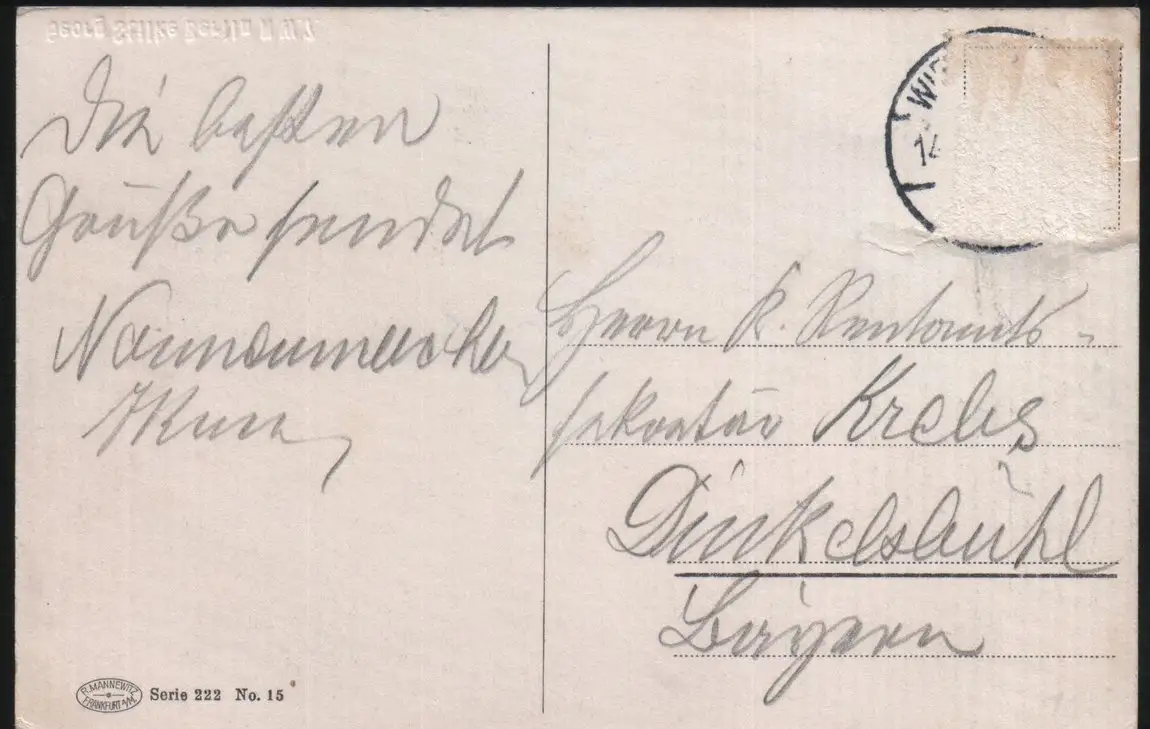 Georg Stilke Berlin N.W.7
Die besten
Grüße sendet
WIE
14
Herrn k. Rentamts-
sekretär Krebs
Dinkelsbühl
Bayern
R. MANNEWITZ
FRANKFURT A/M.
Serie 222 No. 15